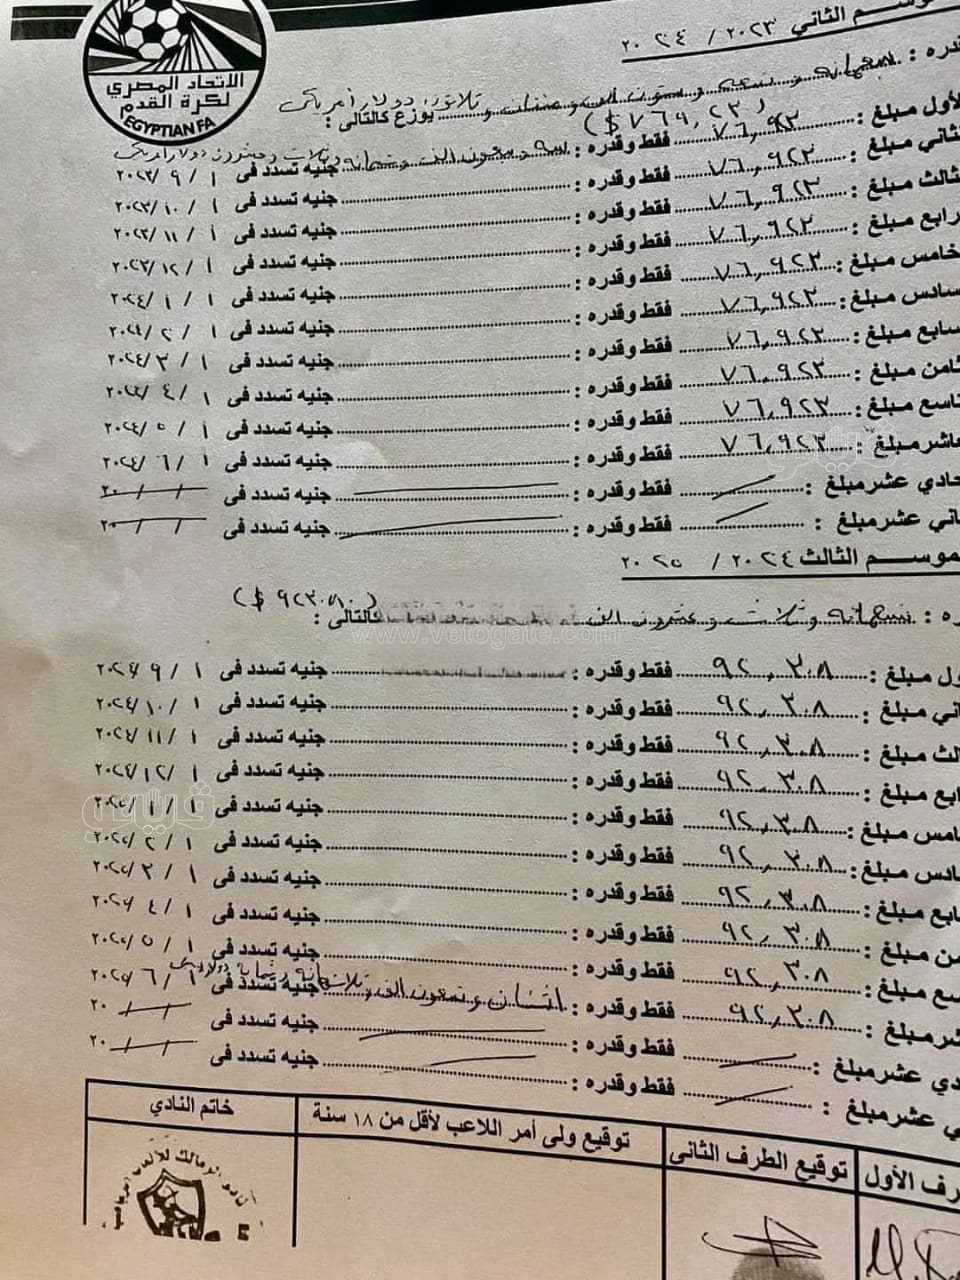 وسم الثاني ٢٠٢٣ / ٢٠٢٤
الاتحاد المصري
لكرة القدم
EGYPTIAN FA
قدره : سبعمائة وتسعة وستون الف و مئتان و ثلاثون دولار أمريكي
(٧٦٩,٢٣٠ $) يوزع كالتالى :
لأول مبلغ : ٧٦,٩٢٣ فقط وقدره : ستة وسبعون الف وتسعمائة وثلاث وعشرون دولار امريكي جنيه تسدد فى ١ / ٩ / ٢٠٢٣
لثاني مبلغ : ٧٦,٩٢٣ فقط وقدره : جنيه تسدد فى ١ / ١٠ / ٢٠٢٣
لثالث مبلغ : ٧٦,٩٢٣ فقط وقدره : جنيه تسدد فى ١ / ١١ / ٢٠٢٣
رابع مبلغ : ٧٦,٩٢٣ فقط وقدره : جنيه تسدد فى ١ / ١٢ / ٢٠٢٣
خامس مبلغ : ٧٦,٩٢٣ فقط وقدره : جنيه تسدد فى ١ / ١ / ٢٠٢٤
سادس مبلغ : ٧٦,٩٢٣ فقط وقدره : جنيه تسدد فى ١ / ٢ / ٢٠٢٤
سابع مبلغ : ٧٦,٩٢٣ فقط وقدره : جنيه تسدد فى ١ / ٣ / ٢٠٢٤
ثامن مبلغ : ٧٦,٩٢٣ فقط وقدره : جنيه تسدد فى ١ / ٤ / ٢٠٢٤
تاسع مبلغ : ٧٦,٩٢٣ فقط وقدره : جنيه تسدد فى ١ / ٥ / ٢٠٢٤
عاشر مبلغ : ٧٦,٩٢٣ فقط وقدره : جنيه تسدد فى ١ / ٦ / ٢٠٢٤
حادي عشر مبلغ : فقط وقدره : جنيه تسدد فى / / ٢٠
اني عشر مبلغ : فقط وقدره : جنيه تسدد فى / / ٢٠
موسم الثالث ٢٠٢٤ / ٢٠٢٥
ره : تسعمائة وثلاث وعشرون الف كالتالى :
www.vetogate.com
ول مبلغ : ٩٢,٣٠٨ فقط وقدره : جنيه تسدد فى ١ / ٩ / ٢٠٢٤
اني مبلغ : ٩٢,٣٠٨ فقط وقدره : جنيه تسدد فى ١ / ١٠ / ٢٠٢٤
الث مبلغ : ٩٢,٣٠٨ فقط وقدره : جنيه تسدد فى ١ / ١١ / ٢٠٢٤
ابع مبلغ : ٩٢,٣٠٨ فقط وقدره : جنيه تسدد فى ١ / ١٢ / ٢٠٢٤
امس مبلغ : ٩٢,٣٠٨ فقط وقدره : جنيه تسدد فى ١ / ١ / ٢٠٢٥
ادس مبلغ : ٩٢,٣٠٨ فقط وقدره : جنيه تسدد فى ١ / ٢ / ٢٠٢٥
ابع مبلغ : ٩٢,٣٠٨ فقط وقدره : جنيه تسدد فى ١ / ٣ / ٢٠٢٥
من مبلغ : ٩٢,٣٠٨ فقط وقدره : جنيه تسدد فى ١ / ٤ / ٢٠٢٥
سع مبلغ : ٩٢,٣٠٨ فقط وقدره : جنيه تسدد فى ١ / ٥ / ٢٠٢٥
شر مبلغ : ٩٢,٣٠٨ فقط وقدره : اثنان وتسعون الف وثلاثمائة وثمانية دولار جنيه تسدد فى ١ / ٦ / ٢٠٢٥
دي عشر مبلغ : فقط وقدره : جنيه تسدد فى / / ٢٠
ي عشر مبلغ : فقط وقدره : جنيه تسدد فى / / ٢٠
رف الأول توقيع الطرف الثانى توقيع ولى أمر اللاعب لأقل من ١٨ سنة خاتم النادي
نادي الزمالك للألعاب الرياضية